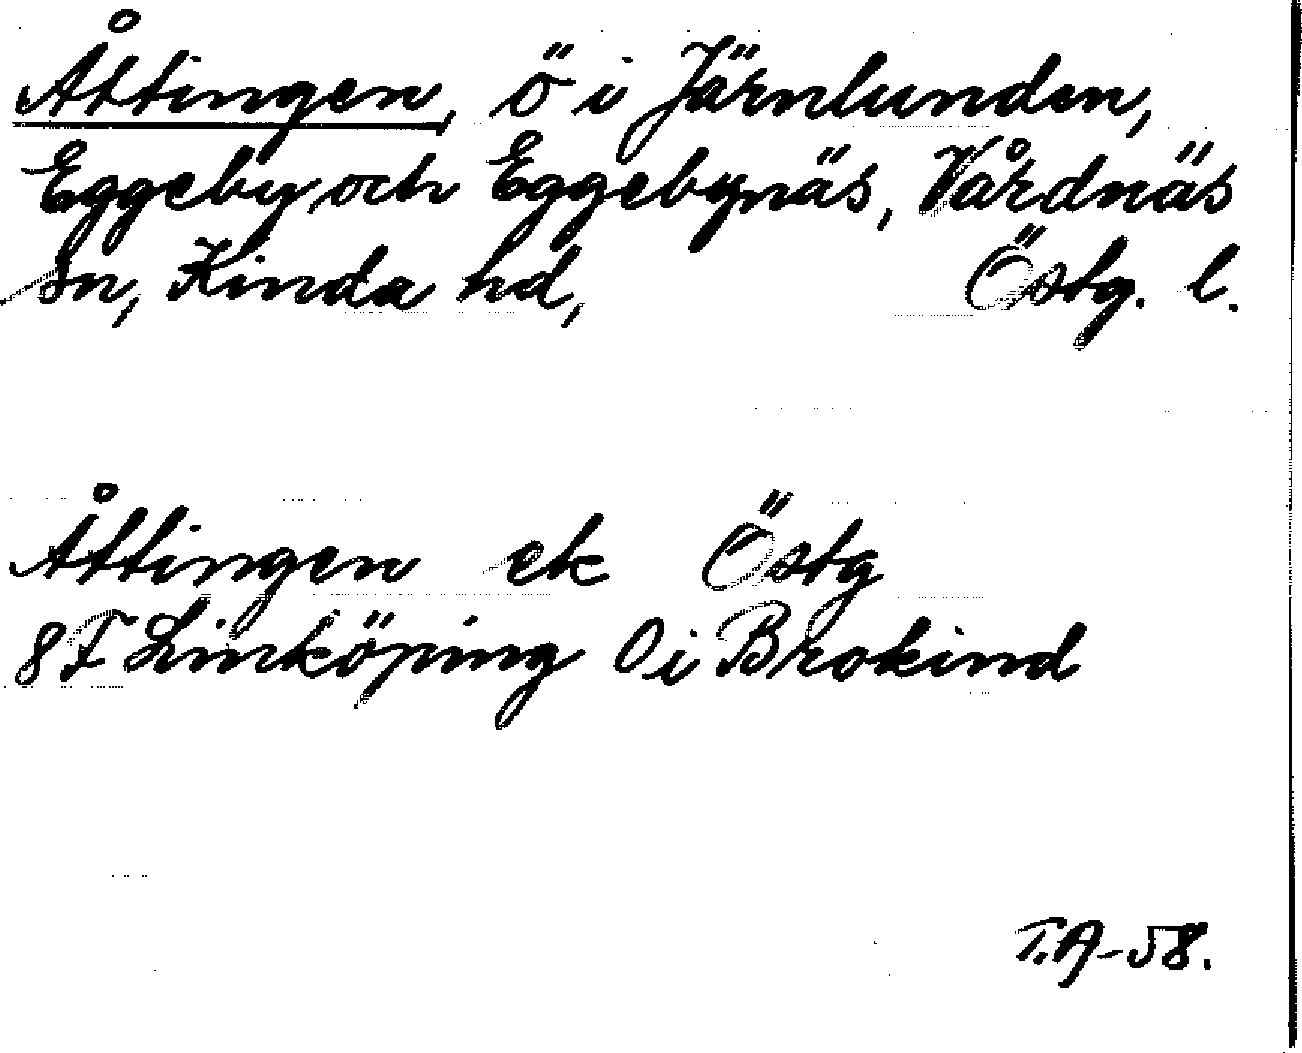 Åttingen, ö i Järnlunden,
Eggeby och Eggebynäs, Vårdnäs
sn, Kinda hd, Östg. l.
Åttingen ek Östg
8F Linköping Öi Brokind
T.A-58.